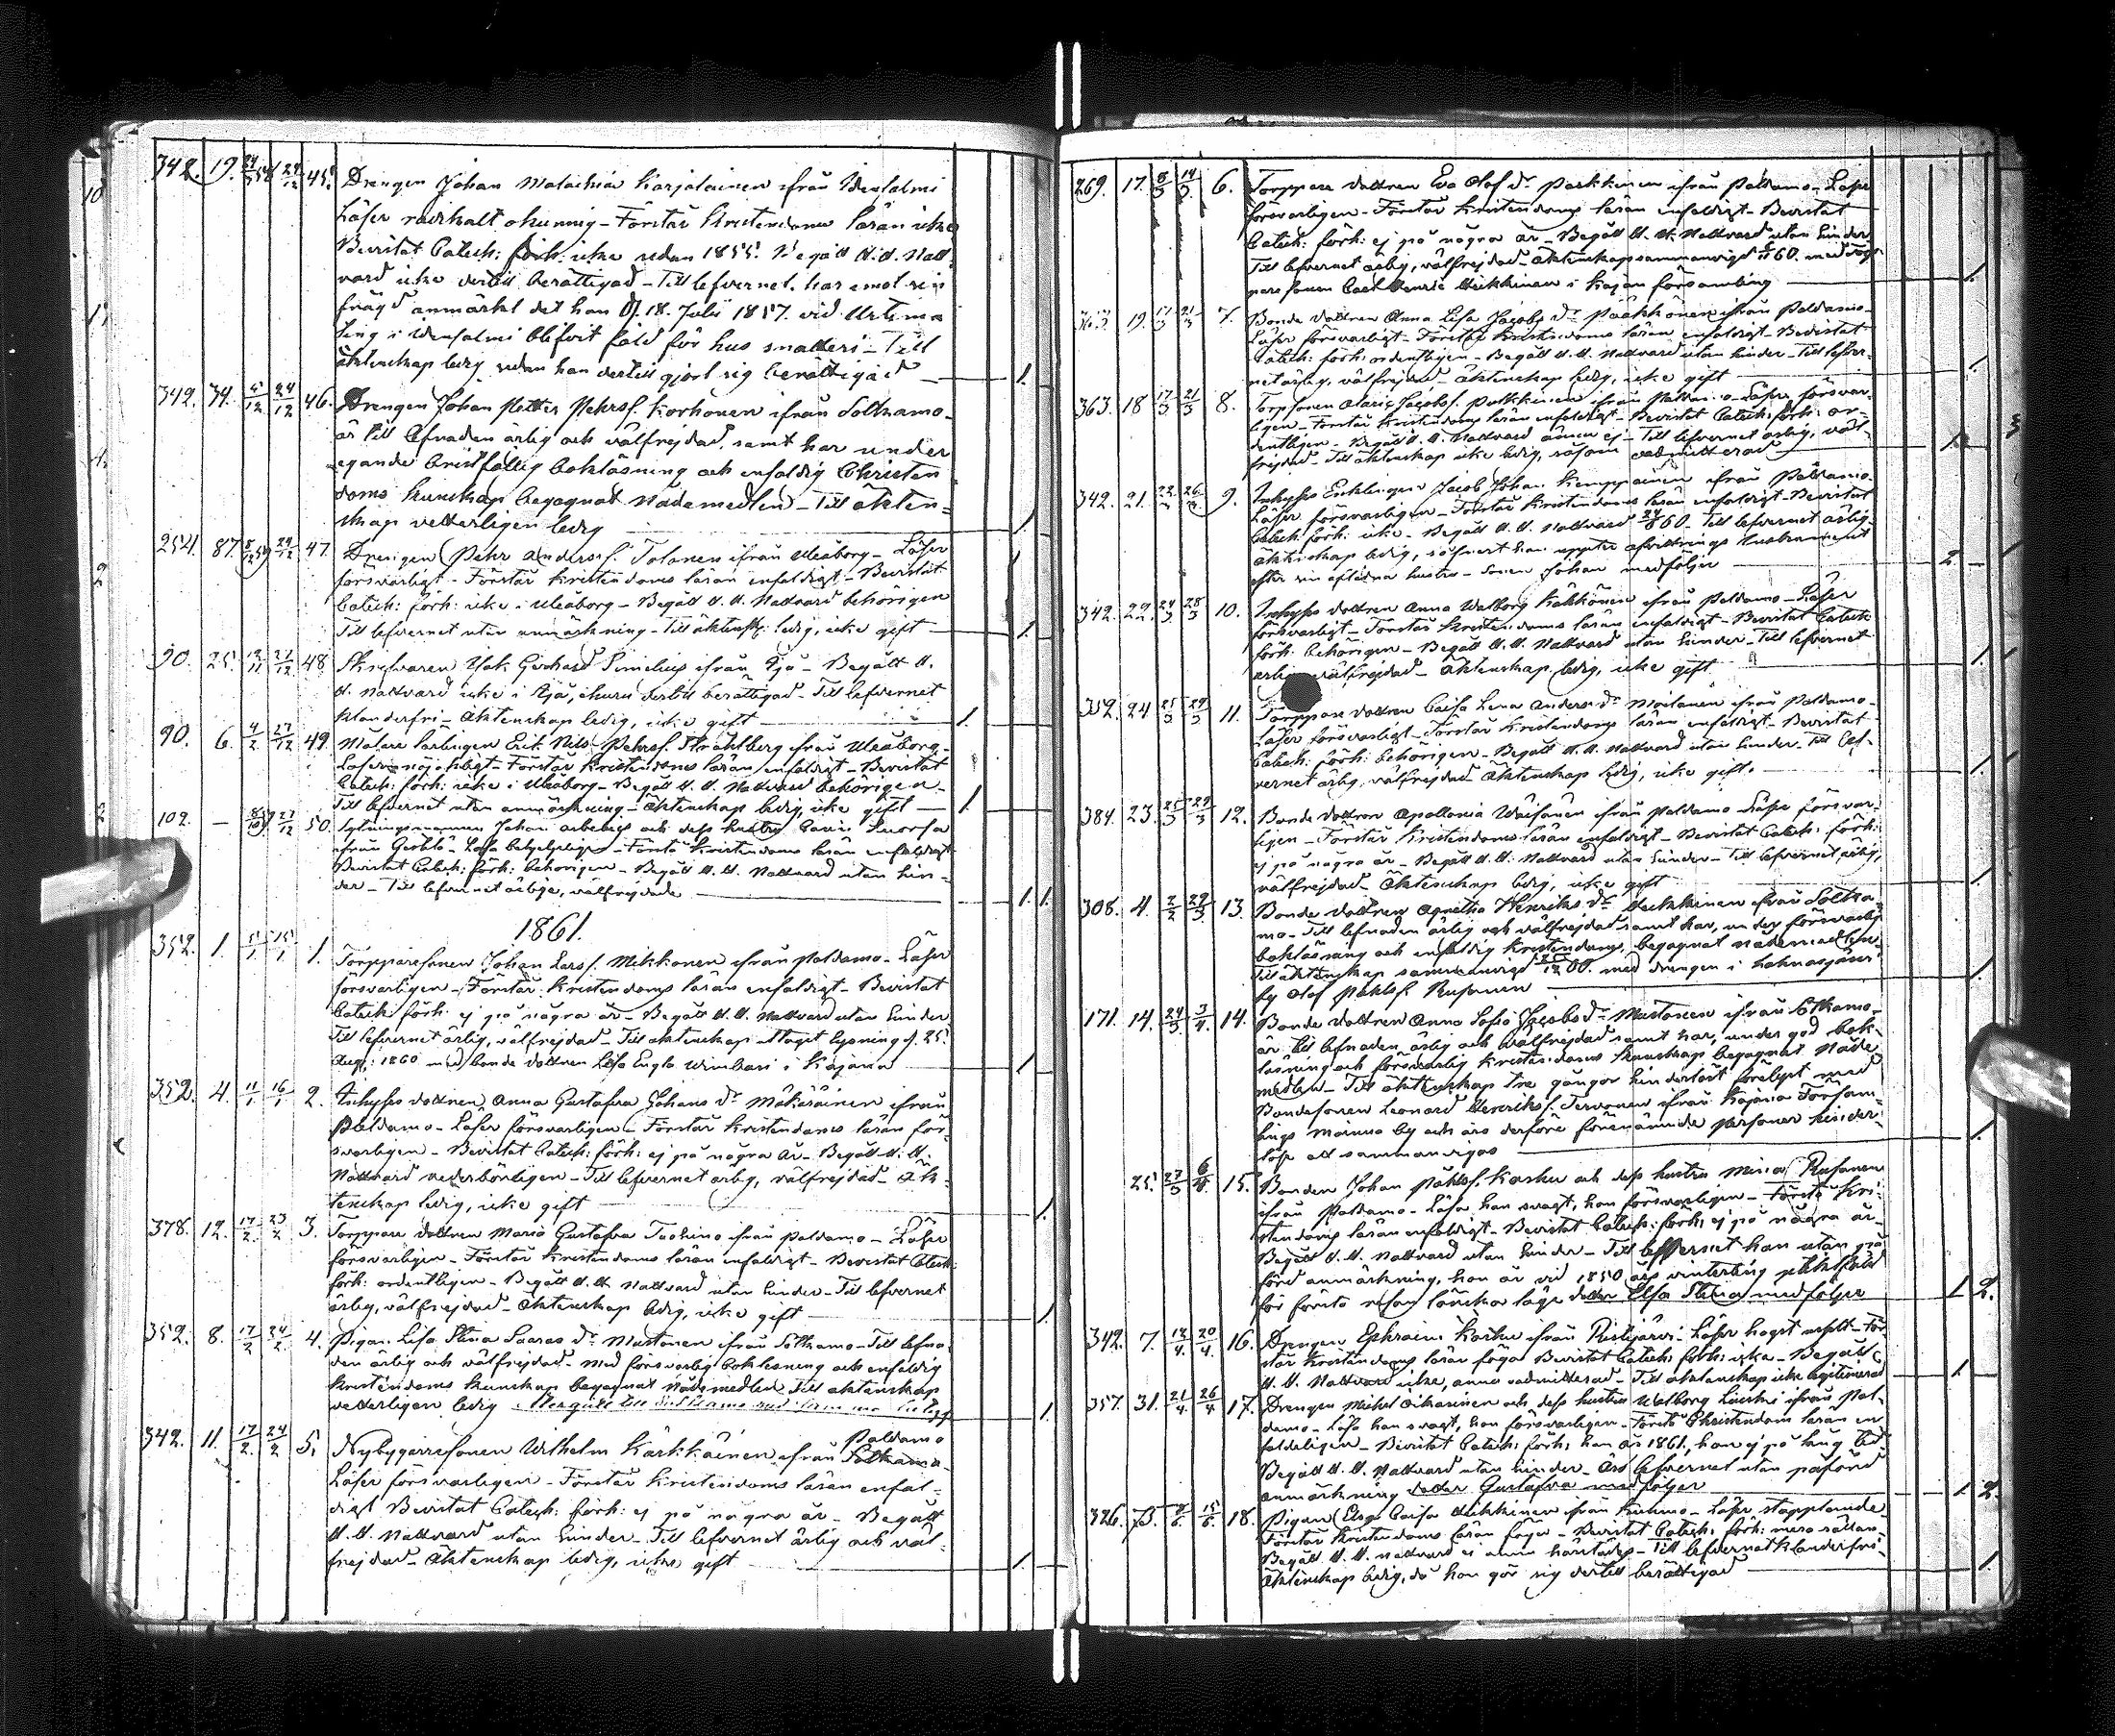 342. 19. 24/12 45. Drengen Johan Malachia Karjalainen ifrån Idensalmi
Läser okunnig - Förstår Kristendoms läran icke
Bevistat Catech: förh: icke sedan 1855. Begått H. H. Natt
vard icke dertill berättigad - Till lefvernet har emot sin
frägd anmärkt det han d. 18. Julii 1857. vid Urtima
Ting i Idensalmi blifvit fäld för hus snatteri - Till
äktenskap ledig sedan han dertill gjort sig berättigad 1.
349. 34. 5/12 24/12 46. Drengen Johan Petter Pehrs. Korhonen ifrån Sotkamo -
är till lefnaden ärlig och välfrejdad samt har under
egande bristfällig bokläsning och enfaldig Christen
doms kunskap begagnat Nådemedlen - Till äkten-
skap vetterligen ledig 1.
254. 87. 24/12 47. Drengen Pehr Anders. Tolonen ifrån Uleåborg - Läser
försvarligt - Förstår Kristendoms läran enfaldigt - Bevistat
Catech: förh: icke i Uleåborg - Begått H. H. Nattvard behörigen
Till lefvernet utan anmärkning - Till äktensk: ledig, icke gift 1.
90. 25. 27/12 48. Skrifvaren Isak Gerhard Simelius ifrån Ijo - Begått H.
H. Nattvard icke i Ijo, ehuru dertill berättigad - Till lefvernet
klanderfri - Äktenskap ledig, icke gift 1.
90. 6. 4/2 27/12 49. Målare lärlingen Erik Nils Pehrs. Ståhlberg ifrån Uleåborg -
Läser nöjaktigt - Förstår Kristendoms läran enfaldigt - Bevistat
Catech: förh: icke i Uleåborg - Begått H. H. Nattvard behörigen -
Till lefvernet utan anmärkning - Äktenskap ledig icke gift 1.
102. - 27/12 50. Sytningsmannen Johan och dess hustru Carin
ifrån - Läsa behjelpligen - Förstå Kristendoms läran enfaldigt
Bevistat Catech: förh: behörigen - Begått H. H. Nattvard utan hin-
der - Till lefvernet ärlige, välfrejdade 1. 1.
1861.
352. 1. 5/1 15/1 1. Torpparesonen Johan Lars. Mikkonen ifrån Paldamo - Läser
försvarligen - Förstår Kristendoms läran enfaldigt - Bevistat
Catech: förh: ej på några år - Begått H. H. Nattvard utan hinder
Till lefvernet ärlig, välfrejdad - Till äktenskap uttagit lysning d. 25.
Aug: 1860 med bonde dottren Lisa Engla i Kajana 1.
352. 4. 11/1 16/1 2. Inhyses dottren Anna Gustafva Johans dr. Mäkäräinen ifrån
Paldamo - Läser försvarligen - Förstår Kristendoms läran för-
svarligen - Bevistat Catech: förh: ej på några år - Begått H. H.
Nattvard vederbörligen - Till lefvernet ärlig, välfrejdad - Äk-
tenskap ledig, icke gift 1.
378. 12. 17/2 23/2 3. Torppare dottren Maria Gustafva ifrån Paldamo - Läser
försvarligen - Förstår Kristendoms läran enfaldigt - Bevistat Catech:
förh: ordentligen - Begått H. H. Nattvard utan hinder - Till lefvernet
ärlig, välfrejdad - Äktenskap ledig, icke gift 1.
352. 8. 17/2 24/2 4. Pigan Lisa Stina Mustonen ifrån Sotkamo - Till lefna-
den ärlig och välfrejdad - med försvarlig bokläsning och enfaldig
Kristendoms kunskap begagnat Nådemedlen Till äktenskap
vetterligen ledig 1.
342. 11. 17/2 24/2 5. Nybyggaresonen Wilhelm Kärkkäinen ifrån Sotkamo Paldamo
Läser försvarligen - Förstår Kristendoms läran enfal-
digt Bevistat Catech: förh: ej på några år - Begått
H. H. Nattvard utan hinder - Till lefvernet ärlig och väl-
frejdad - Äktenskap ledig, icke gift 1.
269. 17. 8/3 14/3 6. Torppare dottren Eva Olofs dr. Parkkinen ifrån Paldamo - Läser
försvarligen - Förstår Kristendoms läran enfaldigt - Bevistat
Catech: förh: ej på några år - Begått H. H. Nattvard utan hinder
Till lefvernet ärlig, välfrejdad - Äktenskap sammanvigd 60. med Torp-
pare sonen Carl Henric Heikkinen i Kajan församling 1.
363 19. 17/3 21/3 7. Bonde dottren Anna Lisa Jacobs dr. Pääkkönen ifrån Paldamo -
Läser försvarligt - Förstår Kristendoms läran enfaldigt - Bevistat
Catech: förh: ordentligen - Begått H. H. Nattvard utan hinder - Till lefver-
net ärlig, välfrejdad - Äktenskap ledig, icke gift 1.
363. 18 17/3 21/3 8. Jacobs. ifrån - Läser försvar-
ligen - Förstår Kristendoms läran enfaldigt - Bevistat Catech: förh: or-
dentligen - Begått H. H. Nattvard ännu ej - Till lefvernet ärlig, väl-
frejdad - Till äktenskap icke ledig, såsom oadmitterad 1.
342. 21. 22/3 26/3 9. Inhyses Enklingen Jacob Johan Kemppainen ifrån Paldamo -
Läser försvarligen - Förstår Kristendoms läran enfaldigt - Bevistat
Catech: förh: icke - Begått H. H. Nattvard 60 - Till lefvernet ärlig -
äktenskap ledig, såframt han afvittrings
efter sin aflidna hustru - Sonen Johan medföljer 2.
342. 22. 24/3 28/3 10. Inhyses dottren Anna Walborg ifrån Paldamo - Läser
försvarligt - Förstår Kristendoms läran enfaldigt - Bevistat Catech:
förh: behörigen - Begått H. H. Nattvard utan hinder - Till lefvernet
ärlig, välfrejdad - Äktenskap ledig, icke gift 1.
24 25/3 29/3 11. Torppare dottren Caisa Lena Anders dr. Moilanen ifrån Paldamo -
Läser försvarligt - Förstår Kristendoms läran enfaldigt - Bevistat
Catech: förh: behörigen - Begått H. H. Nattvard utan hinder - Till lef-
vernet ärlig, välfrejdad - Äktenskap ledig, icke gift. 1.
384. 23. 25/3 29/3 12. Bonde dottren Apollonia Wäisänen ifrån Paldamo - Läser försvar-
ligen - Förstår Kristendoms läran enfaldigt - Bevistat Catech: förh:
ej på några år - Begått H. H. Nattvard utan hinder - Till lefvernet ärlig,
välfrejdad - Äktenskap ledig, icke gift 1.
308. 4. 2/2 29/3 13. Bonde dottren Agnetha Henriks dr. Heikkinen ifrån Sotka-
mo - Till lefnaden ärlig och välfrejdad samt har, under försvarlig
bokläsning och enfaldig Kristendoms, begagnat nådemedlen -
Till äktenskap sammanvigd 60. med drengen i
by Olof Påhls. 1.
171. 14. 24/3 3/4 14. Bonde dottren Anna Sofia Jacobs dr. Mustonen ifrån Sotkamo -
är till lefnaden ärlig och välfrejdad samt har, under god bok-
läsning och försvarlig Kristendoms kunskap begagnat Nåde
medlen - Till äktenskap tre gångor hinderlöst förelyst med
Bondesonen Leonard Henriks. Tervonen ifrån Kajana Försam-
lings Mainua by och äro derföre förenämnde personer hinder-
löse att sammanvigas 1.
25. 27/3 6/4 15. Bonden Johan Påhls. Karhu och dess hustru
ifrån Paldamo - Läsa han svagt, hon försvarligen - Förstå Kri-
stendoms läran enfaldigt - Bevistat Catech: förh: ej på några år -
Begått H. H. Nattvard utan hinder - Till lefvernet hon utan på
förd anmärkning, han är vid 1850 års vinterting pliktfäld
för första resan lönska läge dotter Elsa Stina medföljer 1 2.
342. 7. 12/4 20/4 16. Drengen Ephraim Karhu ifrån Ristijärvi - Läser högst uselt - För-
står Kristendoms läran föga Bevistat Catech: förh: icke - Begått
H. H. Nattvard icke, ännu oadmitterad - Till äktenskap icke legitimerad 1.
357. 31. 21/4 26/4 17. Drengen Michel Oikarinen och dess hustru Walborg ifrån Pal-
damo - Läsa han svagt, hon försvarligen - Förstå Christendoms läran en
faldeligen - Bevistat Catech: förh: han år 1861, hon ej på lång tid
Begått H. H. Nattvard utan hinder - Äro lefvernet utan påförd
anmärkning dotter Gustafva medföljer 1 2.
326. 18. Pigan Elsa Caisa Heikkinen från - Läser stapplande
Förstår Kristendoms läran föga - Bevistat Catech: förh: mera sällan -
Begått H. H. Nattvard ej - Till lefvernet klanderfri -
Äktenskap ledig, då hon gör sig dertill berättigad 1.